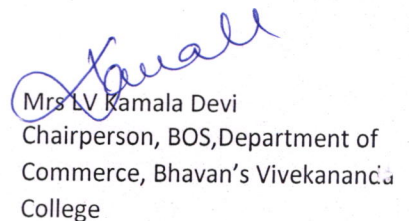 Kamala
Mrs LV Kamala Devi
Chairperson, BOS,Department of
Commerce, Bhavan's Vivekananda
College